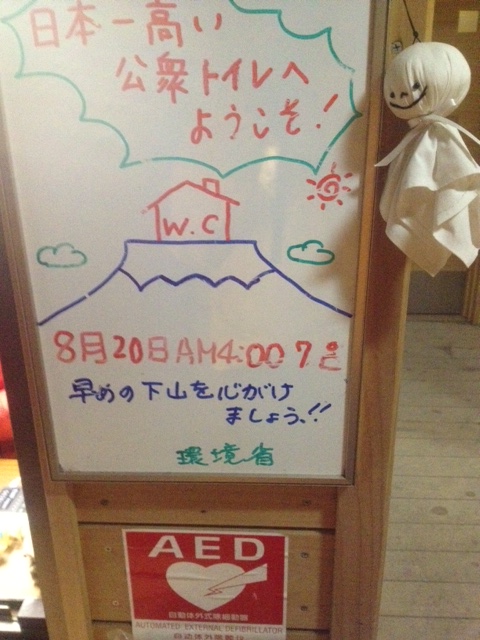 日本一高い
公衆トイレへ
ようこそ!
W.C
8月20日AM4:00 7℃
早めの下山を心がけ
ましょう、!!
環境省
AED
自動体外式除細動器
AUTOMATED EXTERNAL DEFIBRILLATOR